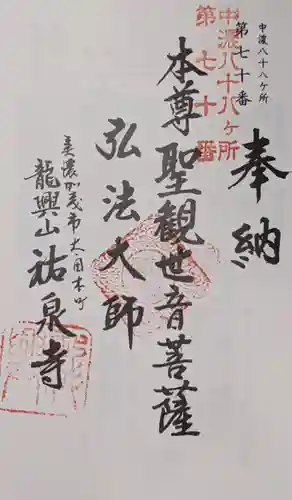 中濃八十八ヶ所
第七十番
中濃八十八ヶ所
第七十番
奉納
本尊聖観世音菩薩
弘法大師
美濃加茂市太田本町
龍興山祐泉寺